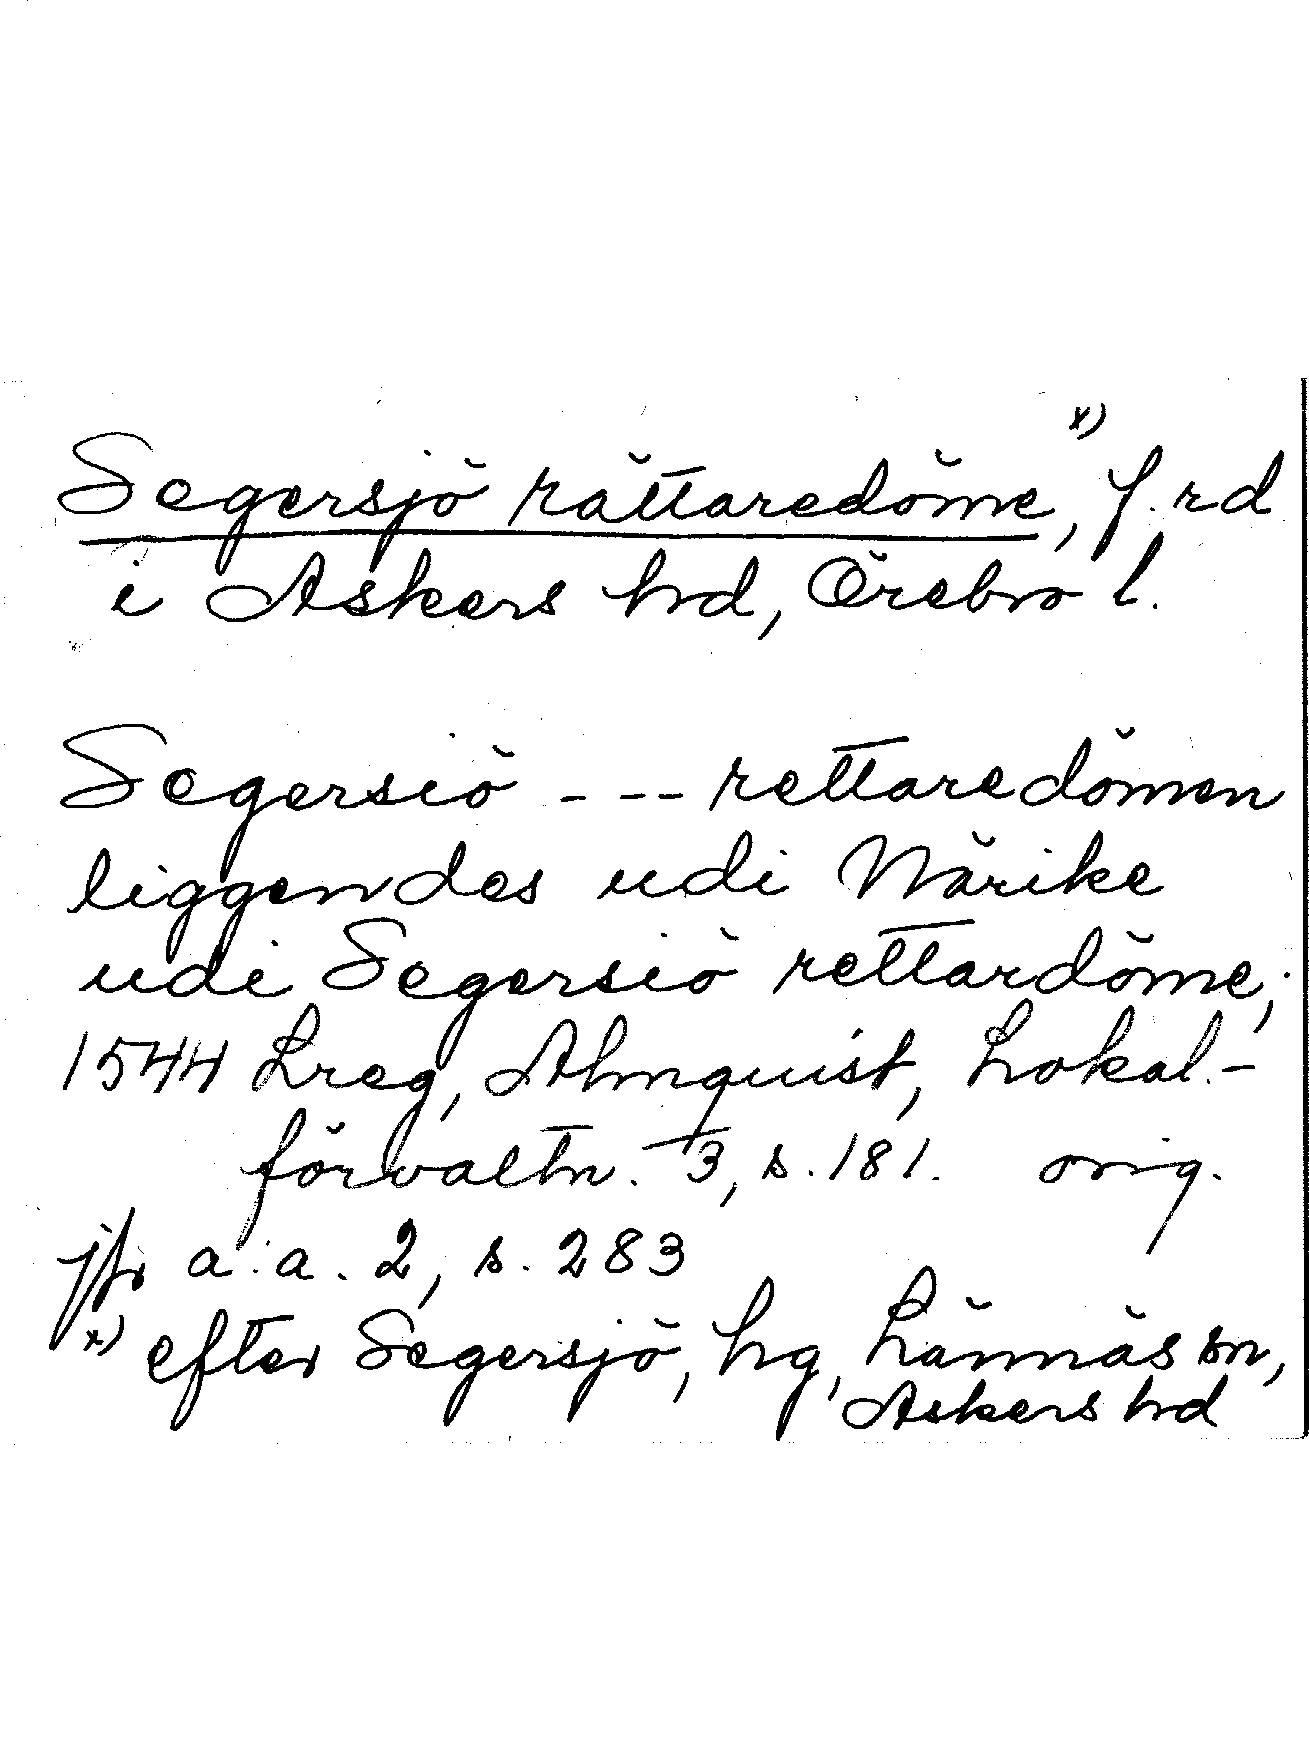 Segersjö rättaredöme, x) f. rd
i Askers hd, Örebro l.
Segersiö --- rettaredömen
liggendes udi Närike
udi Segersiö rettardöme;
1544 Lreg, Almquist, Lokal-
förvaltn. 3, s. 181. orig.
jfr a. a. 2, s. 283
x) efter Segersjö, hg, Lännäs sn,
Askers hd